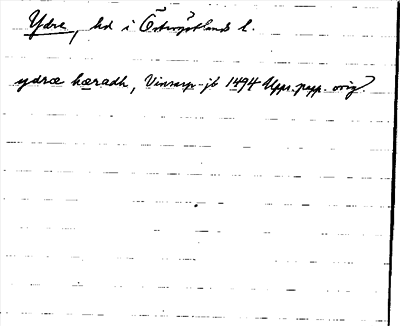 Ydre, hd i Östergötlands l.
ydræ hæradh, Vinsarp-jb 1494 Upps. papp. orig.